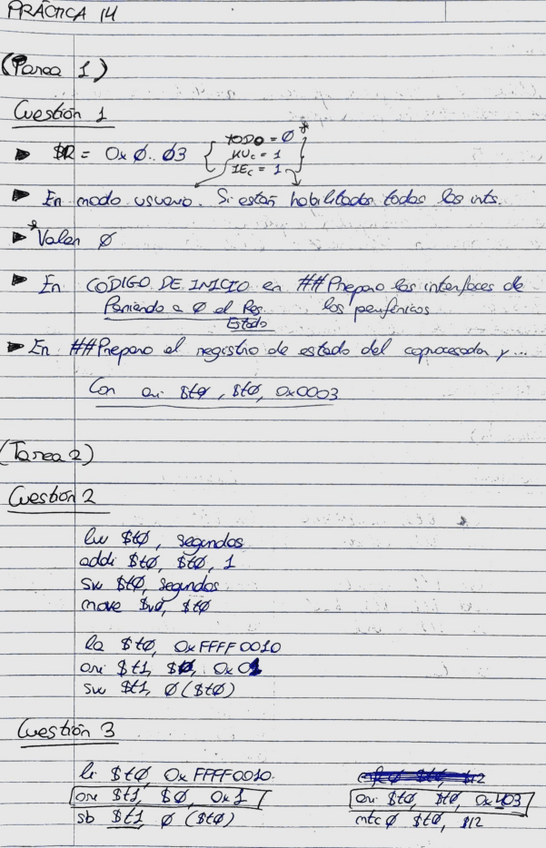 PRÁCTICA 14
(Tarea 1)
Cuestión 1
► $12 = 0x0..03 { TODO = 0 *
KUc = 1
IEc = 1 }
► En modo usuario. Si están habilitadas todas las ints.
► *Valen 0
► En CÓDIGO DE INICIO en ##Preparo las interfaces de
Poniendo a 0 el Reg. los periféricos
Estado
► En ##Preparo el registro de estado del coprocesador y...
Con ori $t0, $t0, 0x0003
(Tarea 2)
Cuestión 2
lw $t0, segundos
addi $t0, $t0, 1
sw $t0, segundos
move $v0, $t0
la $t0, 0xFFFF0010
ori $t1, $0, 0x01
sw $t1, 0($t0)
Cuestión 3
li $t0, 0xFFFF0010
ori $t1, $0, 0x1
sb $t1, 0($t0)
ori $t0, $t0, 0x403
mtc0 $t0, $12